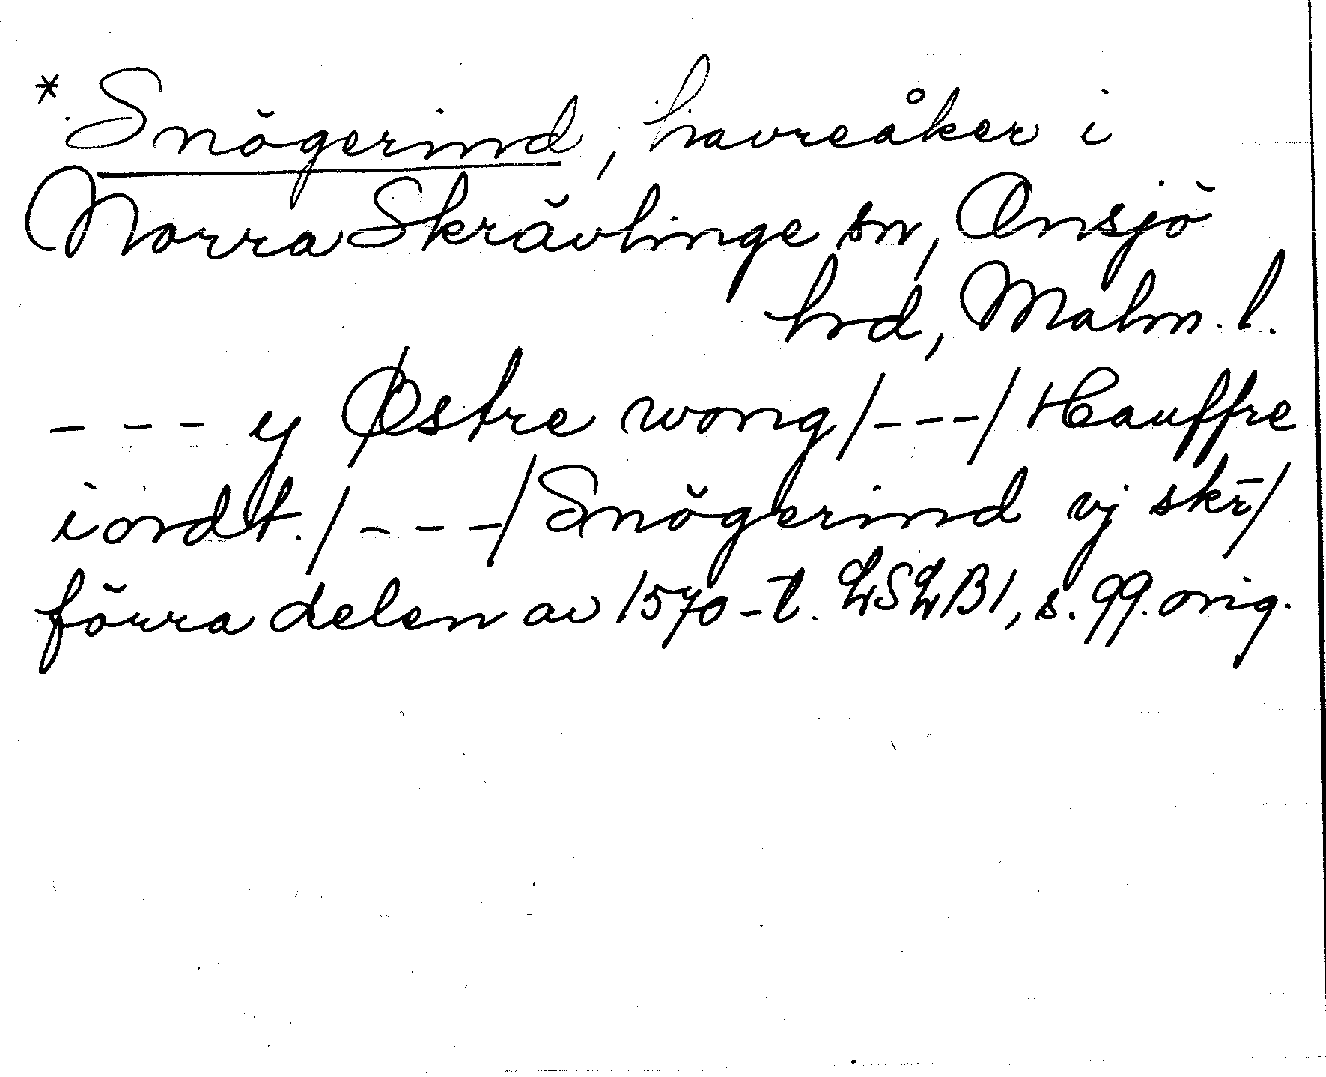 *Snögerind, havreåker i
Norra Skrävlinge sn, Onsjö
hrd, Malm. l.
--- y Østre wong /---/ Hauffre
iordt. /---/ Snögerind vj skr̄/
förra delen av 1570-t. LSLB1, s. 99. orig.